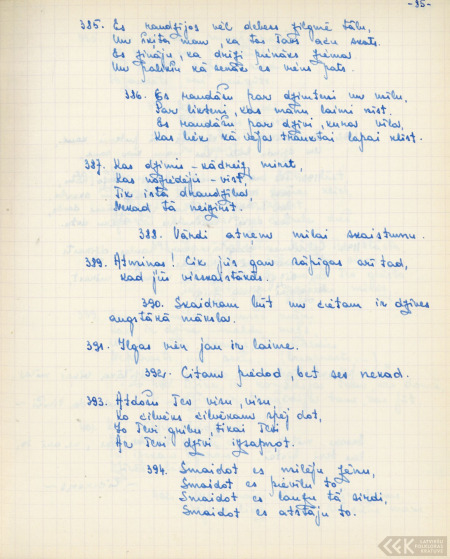 -95-
385. Es raudzījos vēl debess zilgmē tālu,
Un likās man, ka tas Tavs acu skats.
Es zināju, ka drīzi pienāks ziema
Un palikšu kā senāk es viens pats.
386. Es raudāšu par dzimteni un mīlu,
Par likteni, kas mānu laimi nīst,
Es raudāšu par dzīvi, kura viļas,
Kas liek kā vēja trauktai lapai klīst.
387. Kas dzimis – kādreiz mirst,
Kas noziedējis – vīst,
Tik īsta draudzība,
Nekad tā neizirst.
388. Vārdi atņem mīlai skaistumu.
389. Atmiņas! Cik jūs gan sāpīgas arī tad,
kad jūs visskaistākās.
390. Skaidram būt un cietam ir dzīves
augstākā māksla.
391. Ilgas vien jau ir laime.
392. Citam piedod, bet sev nekad.
393. Atdošu Tev visu, visu,
Ko cilvēks cilvēkam spēj dot,
Jo Tevi gribu, tikai Tevi
Ar Tevi dzīvi izsapņot.
394. Smaidot es mīlēju zēnu,
Smaidot es pievīlu to,
Smaidot es lauzu tā sirdi,
Smaidot es atstāju to.
LATVIEŠU
FOLKLORAS
KRĀTUVE